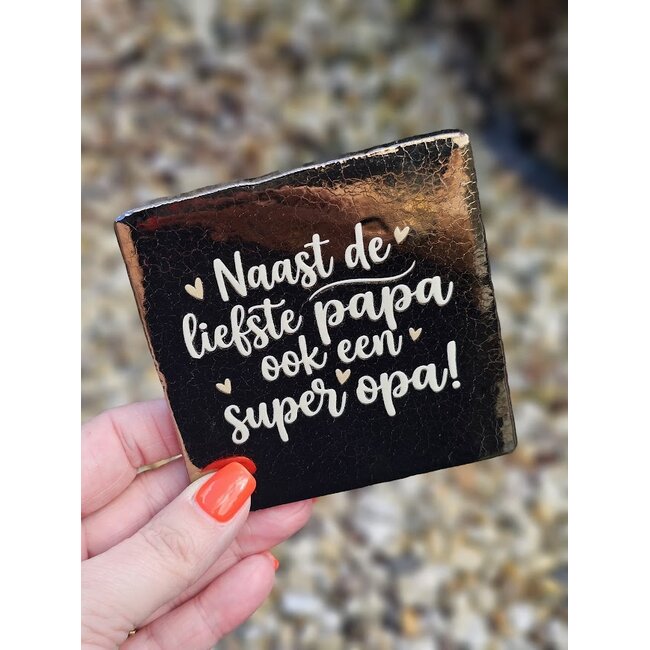 Naast de
liefste papa
ook een
super opa!